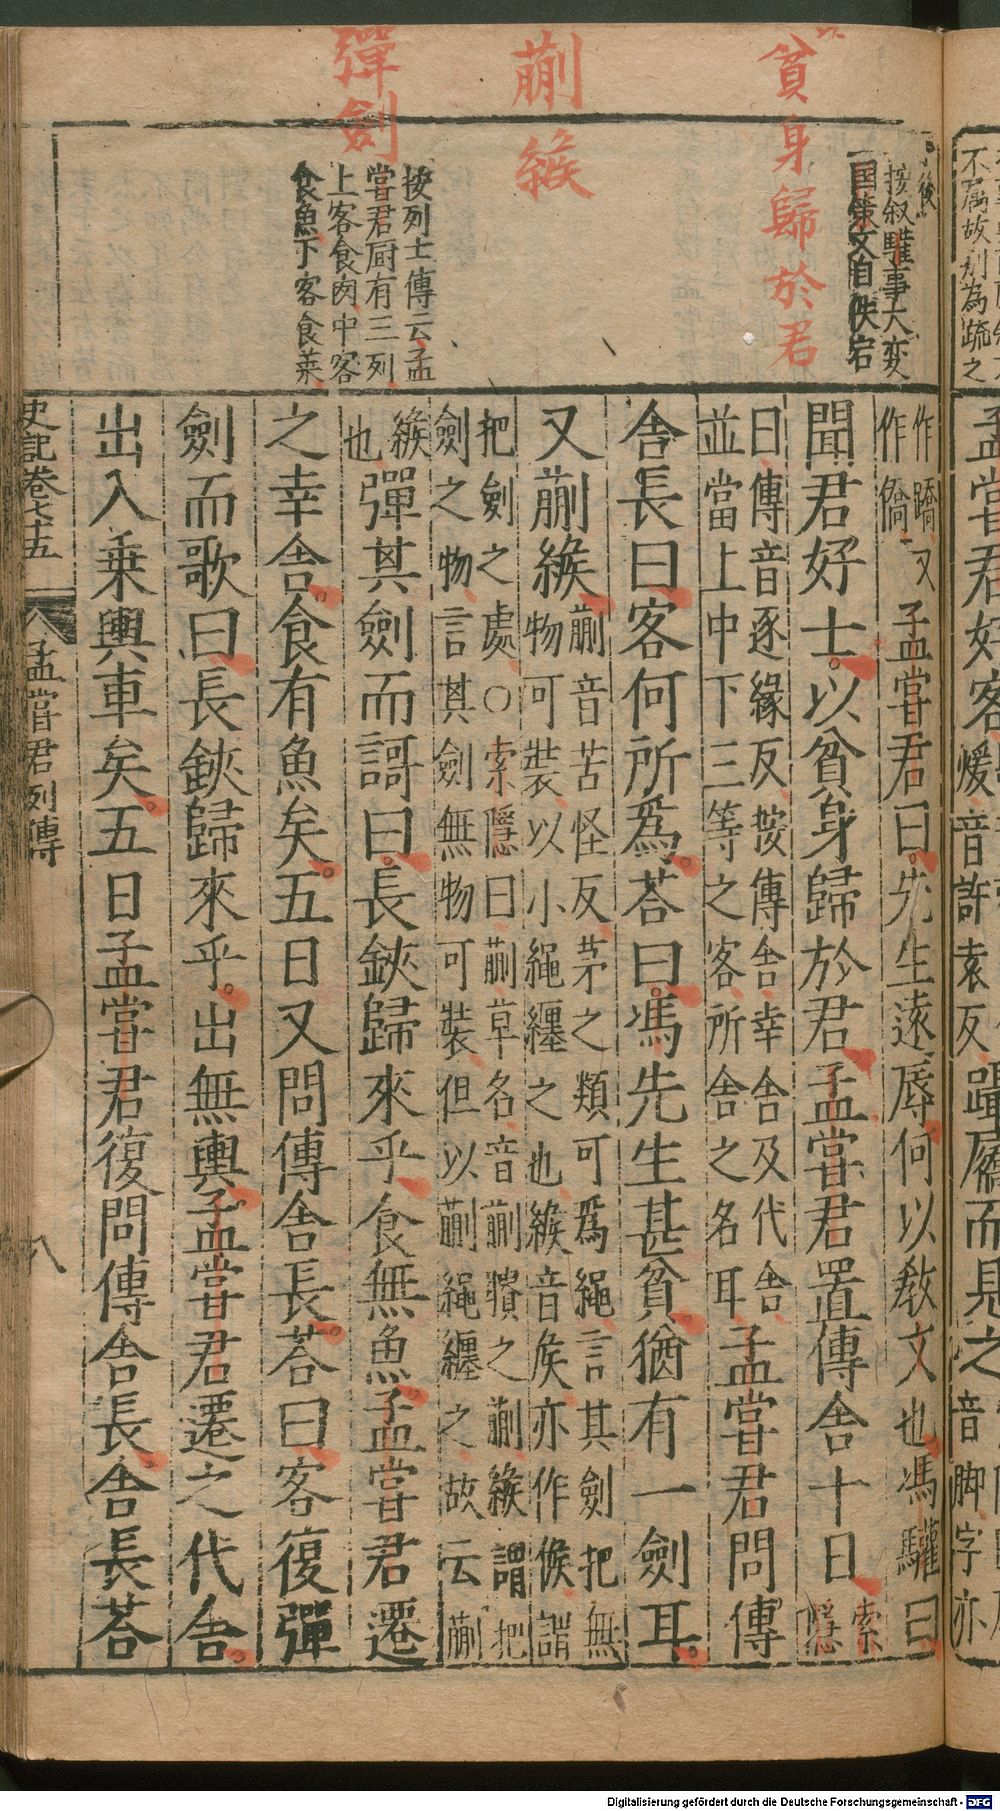 貧身歸於君
蒯緱
彈劍
後
按叙驩事大変
国策文自佚宕
按列士傳云孟
嘗君厨有三列
上客食肉中客
食魚下客食菜
不属故別為疏之
孟嘗君好客
煖音許袁反
躡屩而見之
音脚字亦
作蹻
作僑又
孟嘗君曰先生遠辱何以敎文也馮驩曰
聞君好士以貧身歸於君孟嘗君置傳舍十日
索
隱
曰傳音逐緣反按傳舍幸舍及代舍
並當上中下三等之客所舍之名耳
孟嘗君問傳
舍長曰客何所爲荅曰馮先生甚貧猶有一劍耳
又蒯緱
蒯音苦怪反茅之類可爲繩言其劍把無
物可裝以小繩纏之也緱音侯亦作候謂
把劍之處○索隱曰蒯草名音蒯聵之蒯緱謂把
劍之物言其劍無物可裝但以蒯繩纏之故云蒯
緱
也
彈其劍而謌曰長鋏歸來乎食無魚孟嘗君遷
之幸舍食有魚矣五日又問傳舍長荅曰客復彈
劍而歌曰長鋏歸來乎出無輿孟嘗君遷之代舍
出入乗輿車矣五日孟嘗君復問傳舍長舍長荅
史記卷七十五
孟嘗君列傳
八
Digitalisierung gefördert durch die Deutsche Forschungsgemeinschaft - DFG